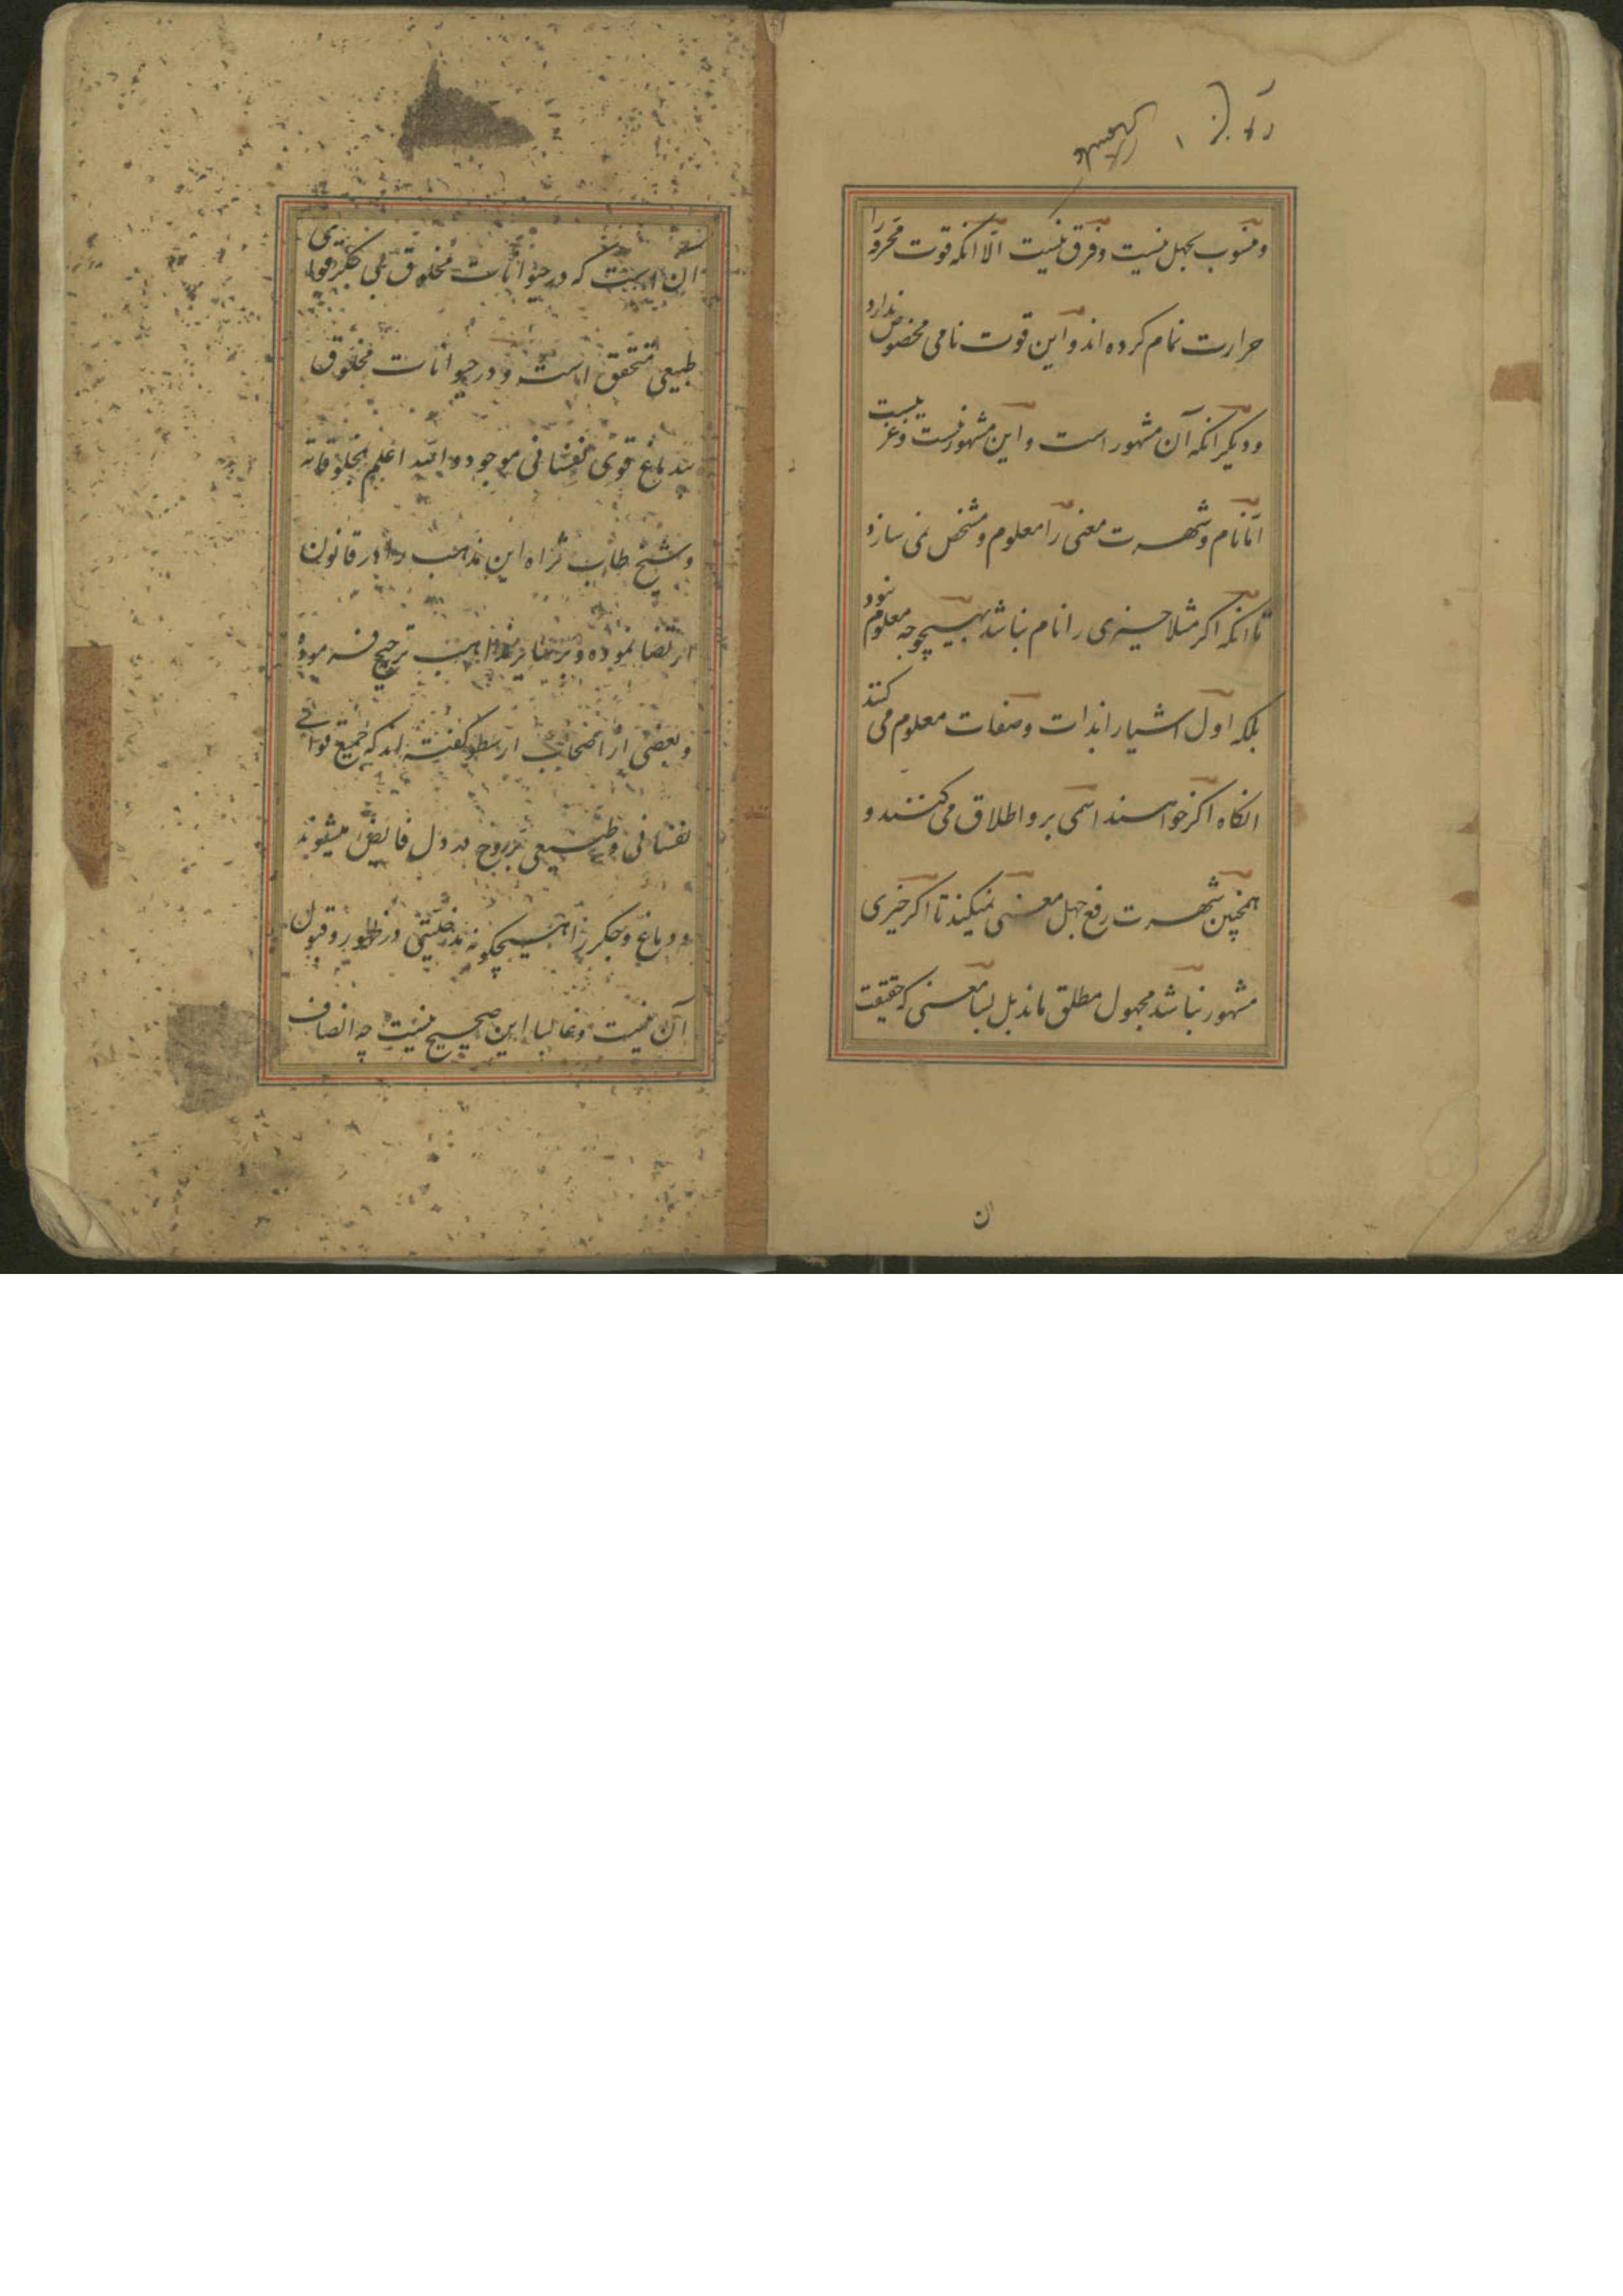 ومنسوب بجهل نیست وفرق نیست الّا انکه قوت محرور را
حرارت نام کرده اند واین قوت نامی مخصوص ندارد
ودیکر انکه آن مشهور است واین مشهور نیست وغرابت نیست
امّا نام وشهرت معنی را معلوم ومشخص نمی سازد
تا انکه اکر مثلا چیزی را نام نباشد بهیچوجه معلوم نبود
بلکه اوّل اشیا را بذات وصفات معلوم می کنند
انکاه اکر خواهند اسمی برو اطلاق می کنند و
همچنین شهرت رفع جهل معنی نمیکند تا اکر چیزی
مشهور نباشد مجهول مطلق ماند بل بسا معنی که حقیقت
ان
ان است که در حیوانات مخلوق بی جکر قوای
طبیعی متحقق است ودر حیوانات مخلوق
بیدماغ قوی نفسانی موجود والله اعلم بمخلوقاته
وشیخ طاب ثراه این مذهب را در قانون
ارتضا نموده وبر سایر مذاهب ترجیح فرموده
وبعضی از اصحاب ارسطو کفته اند که جمیع قوای
نفسانی وطبیعی بر روح در دل فایض میشوند
ودماغ وجکر را هیچکونه مدخلیتی در ظهور وقبول
آن نیست وغالبا این صحیح نیست چه انصاف